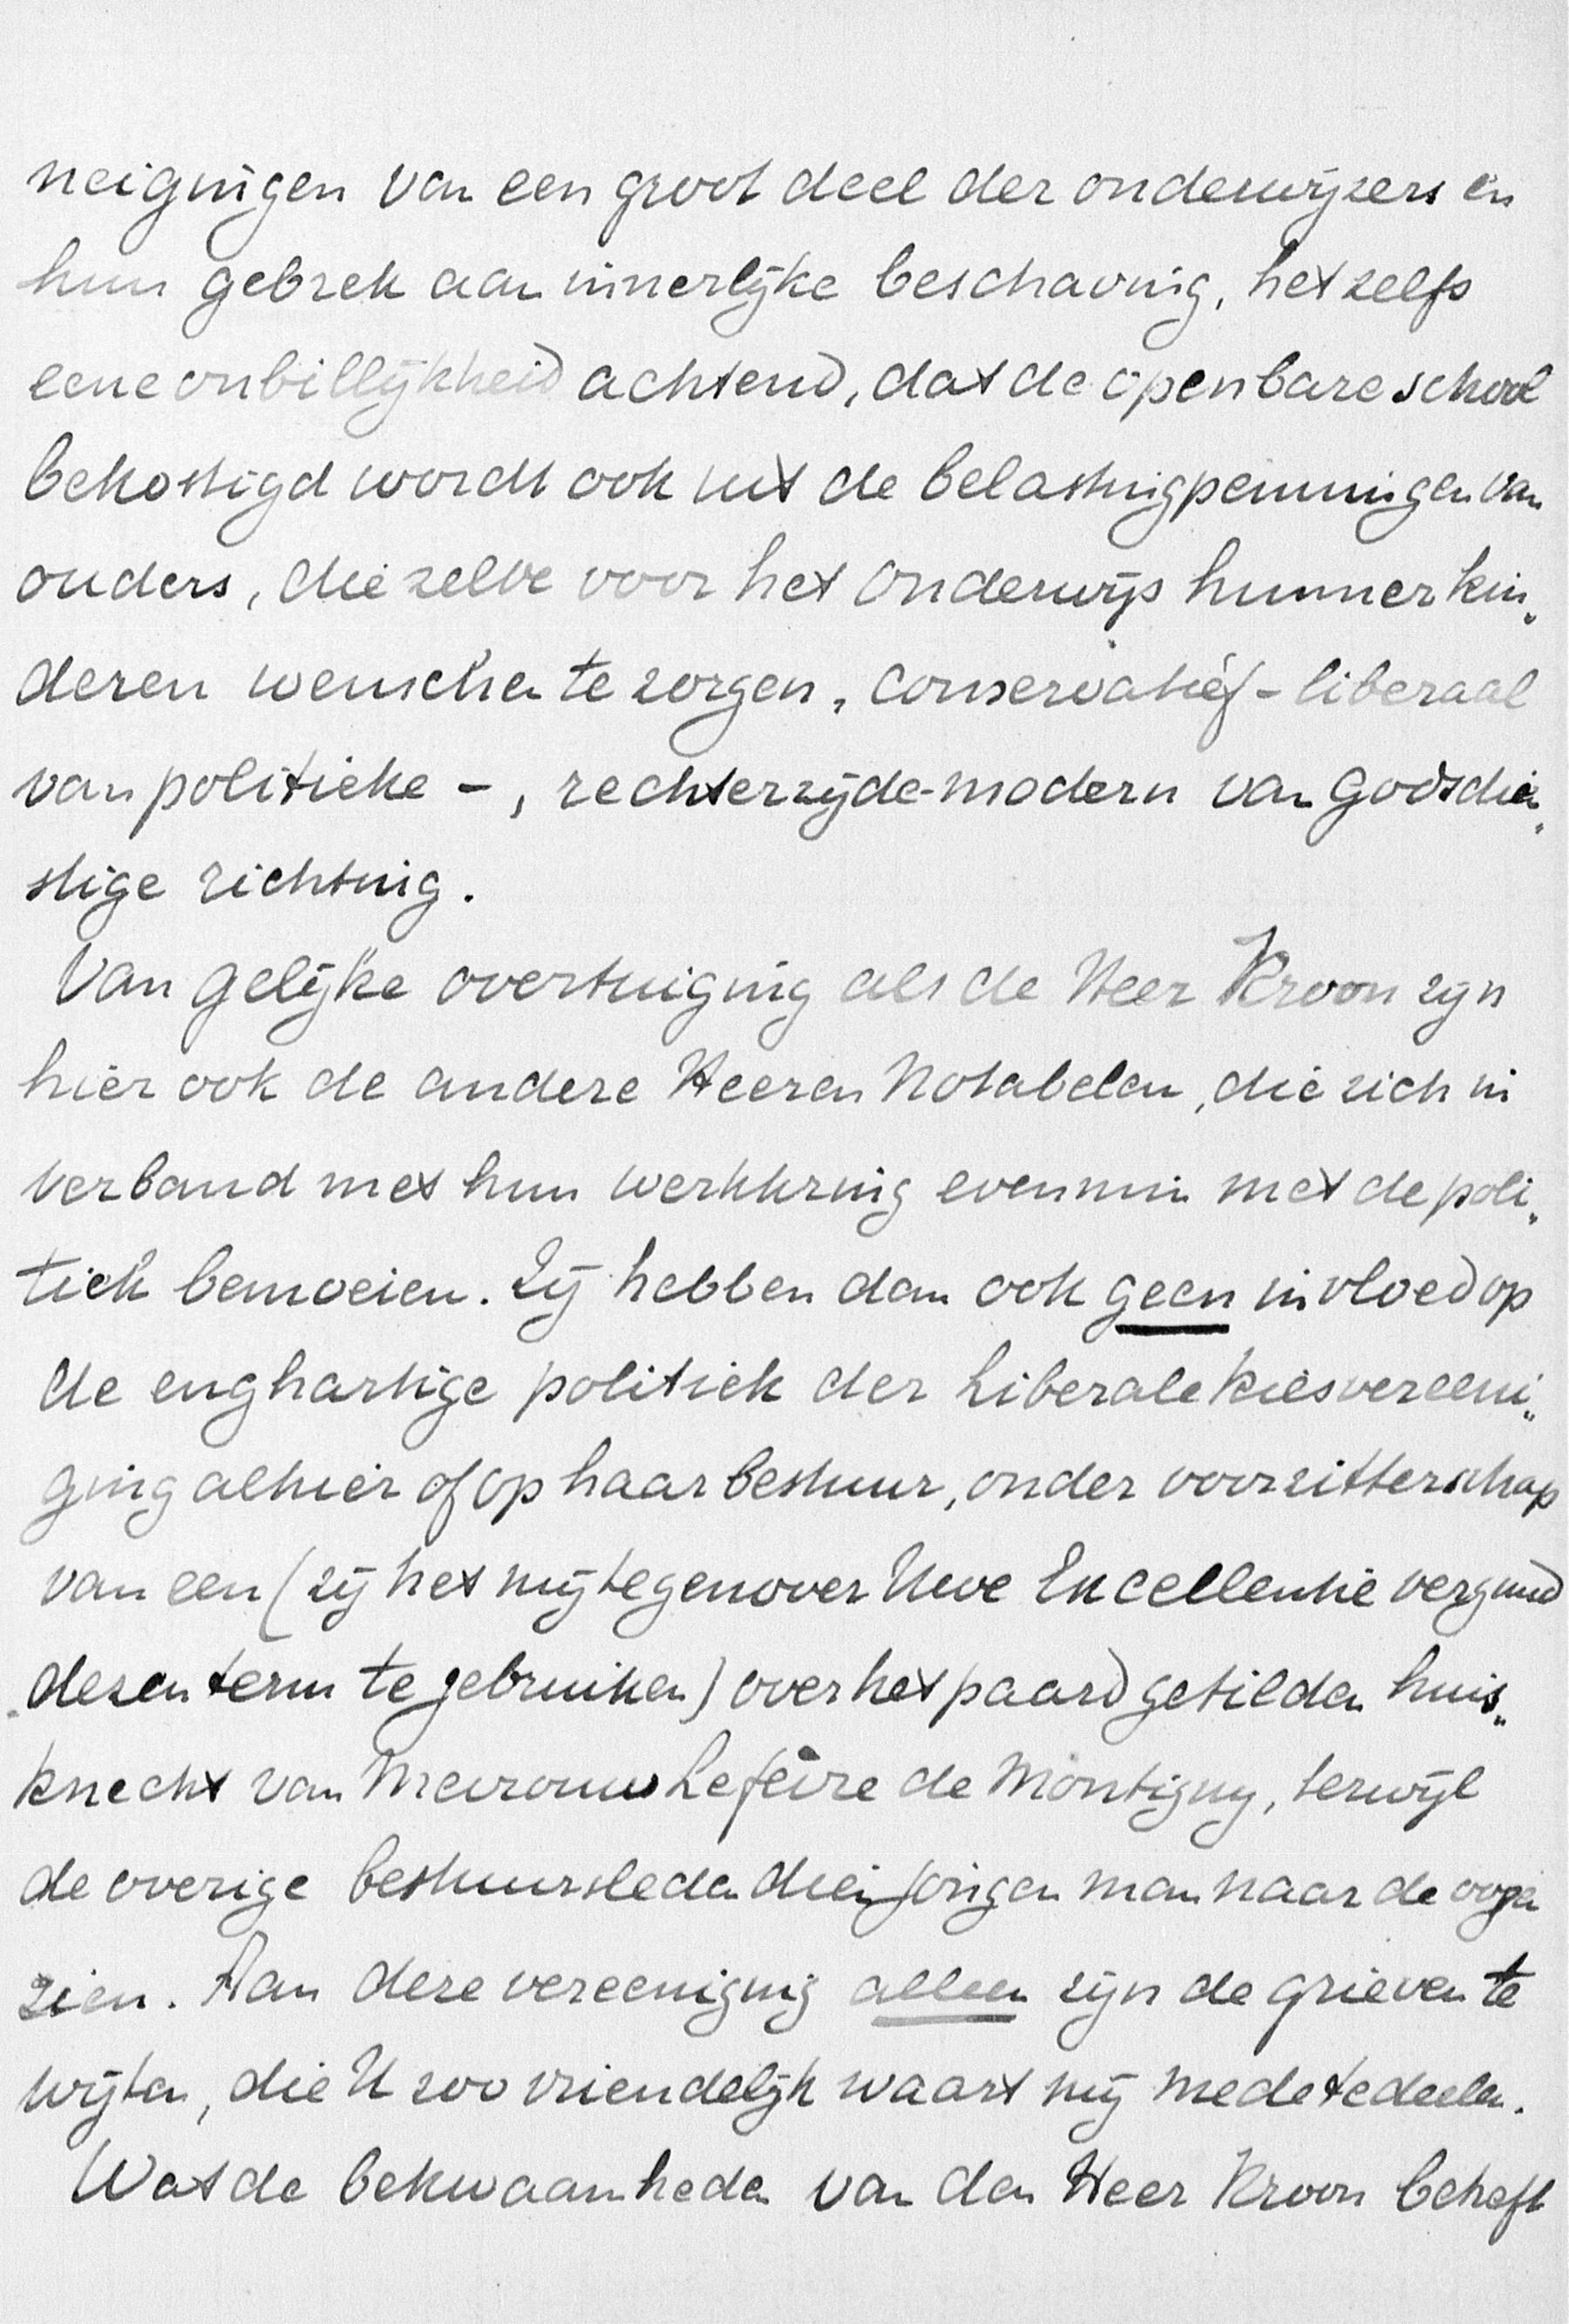 neigingen van een groot deel der onderwijzers en
hun gebrek aan innerlijke beschaving, het zelfs
eene onbillijkheid achtend, dat de openbare school
bekostigd wordt ook uit de belastingpenningen van
ouders, die zelve voor het onderwijs hunner kin„
deren wenschen te zorgen, conservatief-liberaal
van politieke -, rechterzijde-modern van godsdien„
stige richting.
Van gelijke overtuiging als de Heer Kroon zijn
hier ook de andere Heeren Notabelen, die zich in
verband met hun werkkring evenmin met de poli„
tiek bemoeien. Zij hebben dan ook geen invloed op
de enghartige politiek der Liberale kiesvereeni„
ging alhier of op haar bestuur, onder voorzitterschap
van een (zij het mij tegenover Uwe Excellentie vergund
dezen term te gebruiken) over het paard getilden huis„
knecht van Mevrouw Lefèvre de Montigny, terwijl
de overige bestuursleden dien jongen man naar de oogen
zien. Aan deze vereeniging alleen zijn de grieven te
wijten, die U zoo vriendelijk waart mij mede te deelen.
Wat de bekwaamheden van den Heer Kroon betreft